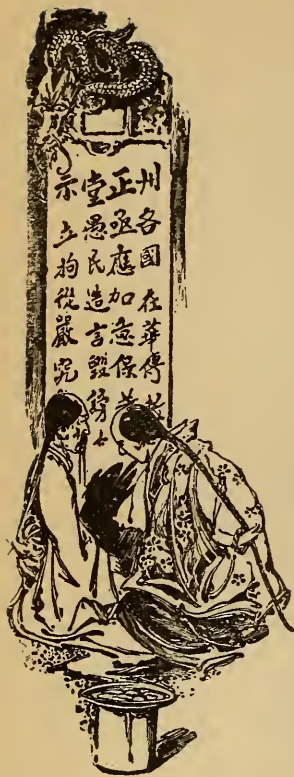 州各國在華傳
正亟應加意保
堂愚民造言毀謗
示立拘從嚴究